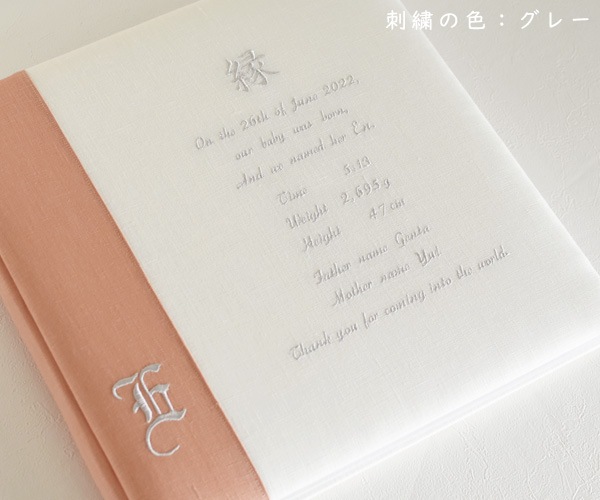 刺繍の色：グレー
縁
On the 26th of June 2022,
our baby was born,
And we named her En.
Time 5:13
Weight 2,695g
Height 47cm
Father name Genta
Mother name Yui
Thank you for coming into the world.
E